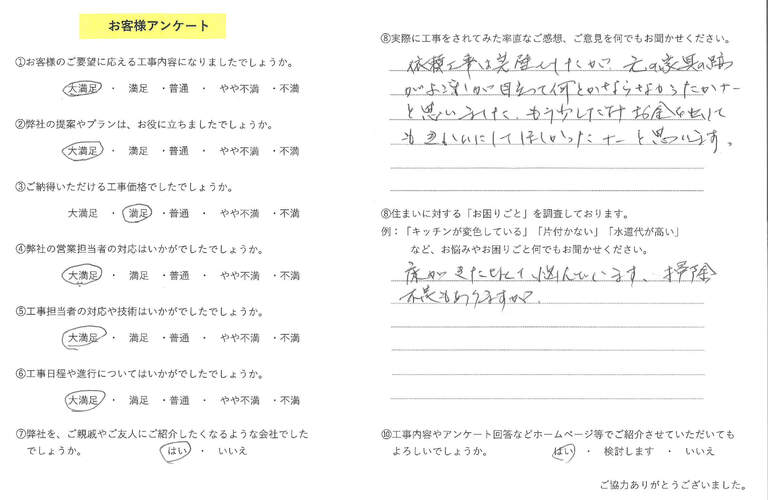 お客様アンケート
①お客様のご要望に応える工事内容になりましたでしょうか。
大満足 ・ 満足 ・普通 ・ やや不満 ・不満
②弊社の提案やプランは、お役に立ちましたでしょうか。
大満足 ・ 満足 ・普通 ・ やや不満 ・不満
③ご納得いただける工事価格でしたでしょうか。
大満足 ・ 満足 ・普通 ・ やや不満 ・不満
④弊社の営業担当者の対応はいかがでしたでしょうか。
大満足 ・ 満足 ・普通 ・ やや不満 ・不満
⑤工事担当者の対応や技術はいかがでしたでしょうか。
大満足 ・ 満足 ・普通 ・ やや不満 ・不満
⑥工事日程や進行についてはいかがでしたでしょうか。
大満足 ・ 満足 ・普通 ・ やや不満 ・不満
⑦弊社を、ご親戚やご友人にご紹介したくなるような会社でした
でしょうか。 はい ・ いいえ
⑧実際に工事をされてみた率直なご感想、ご意見を何でもお聞かせください。
依頼工事は完璧でしたが、元の家具の跡
がよごれが目立って何とかならなかったかナー
と思いました。もう少しだけお金を出して
もきれいにしてほしかったナーと思います。
⑧住まいに対する「お困りごと」を調査しております。
例：「キッチンが変色している」「片付かない」「水道代が高い」
など、お悩みやお困りごと何でもお聞かせください。
床がきたなくて、悩んでいます。掃除
不足もありますが。
⑩工事内容やアンケート回答などホームページ等でご紹介させていただいても
よろしいでしょうか。 はい ・ 検討します ・ いいえ
ご協力ありがとうございました。